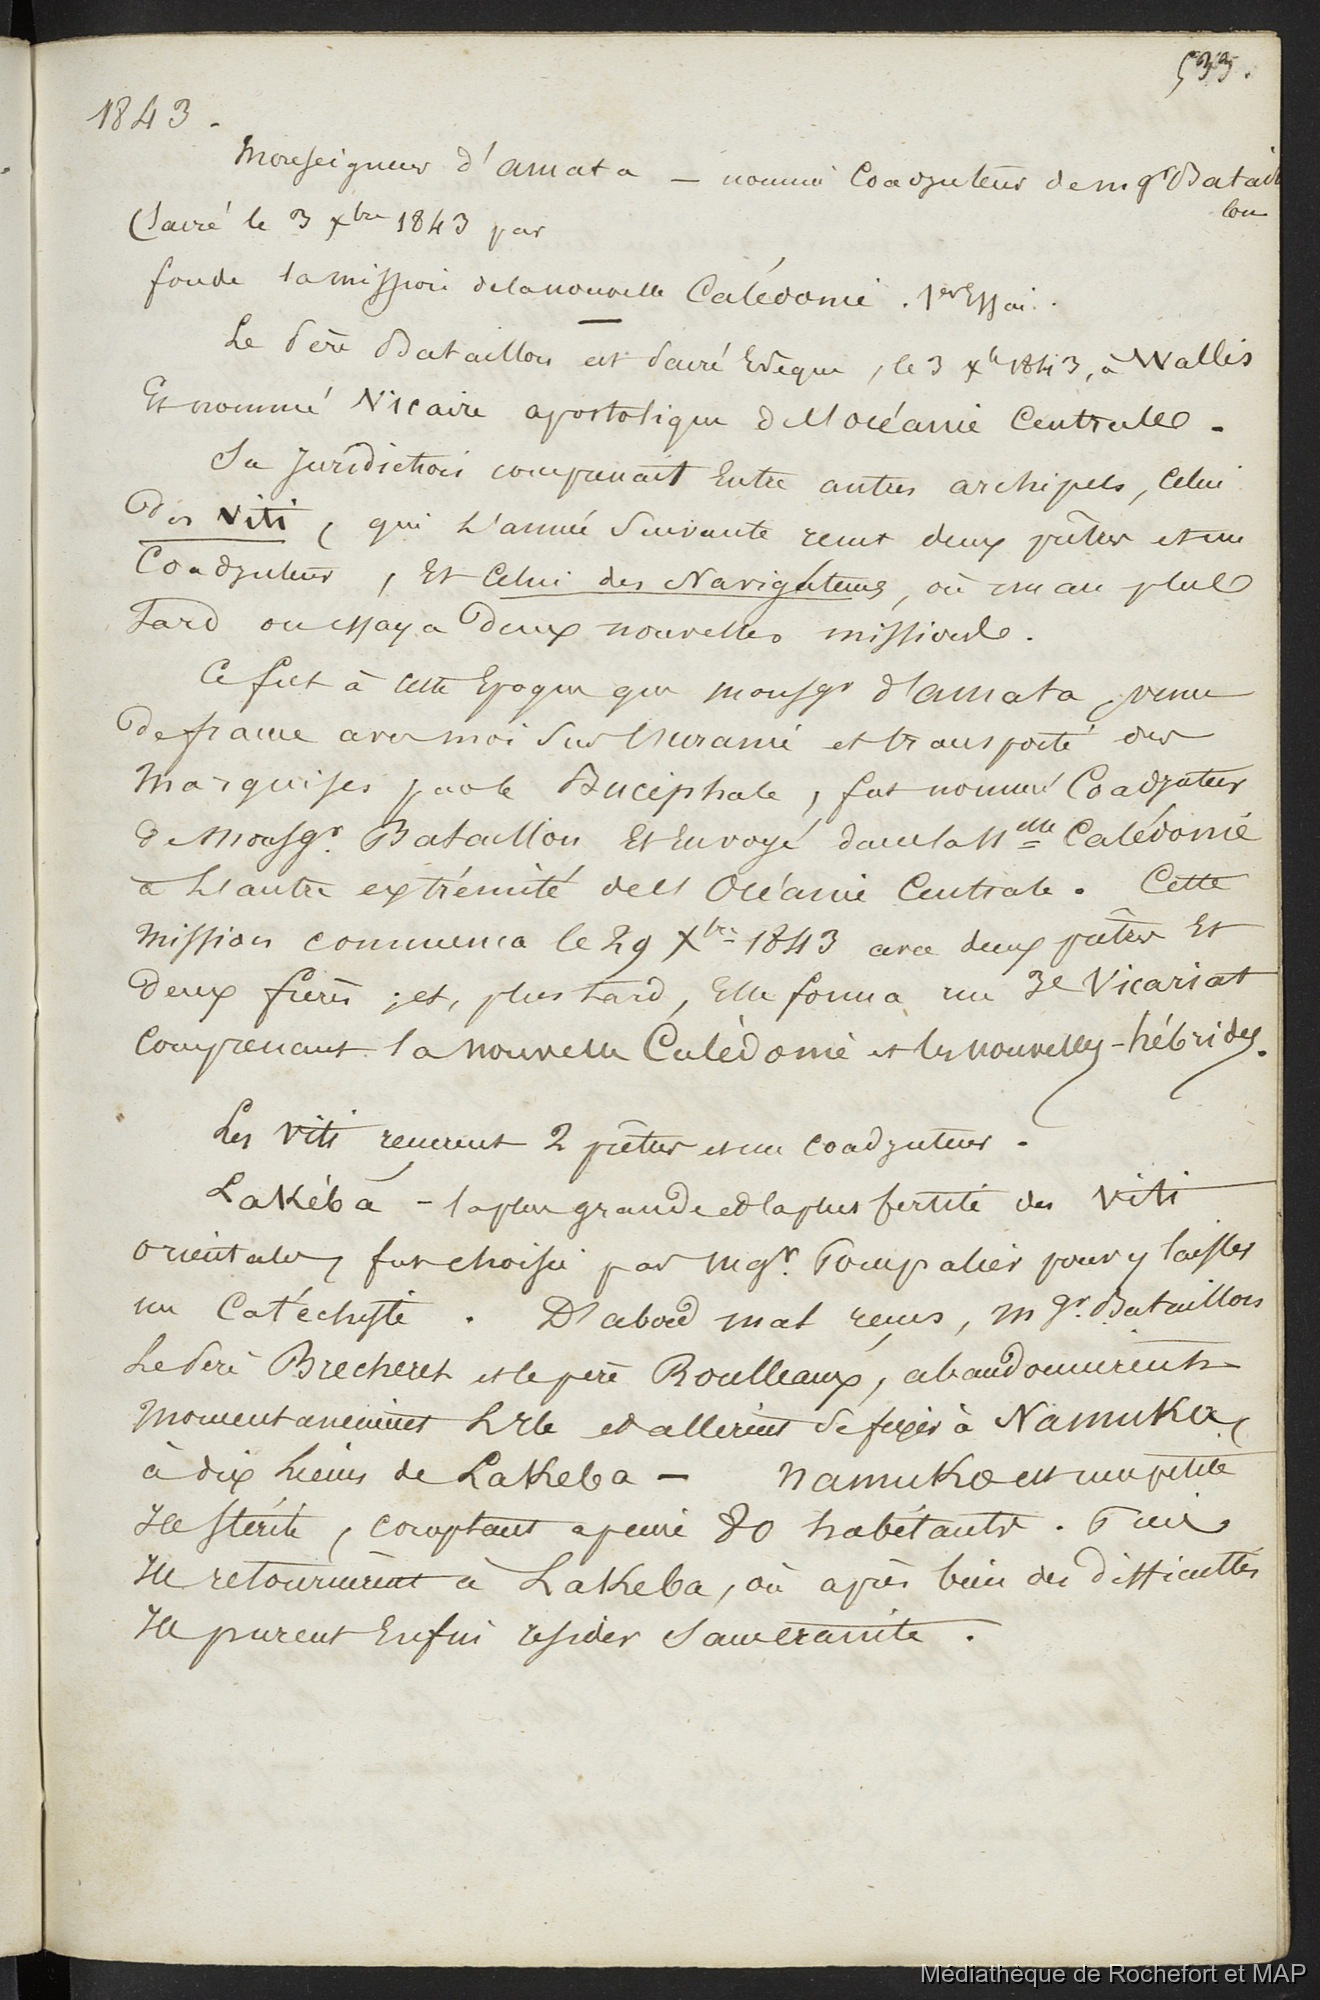 533.
1843.
Monseigneur d'amata — nommé Coadjuteur de mgr Batail
lon
(Sacré le 3 xbre 1843 par
fonde la mission de la nouvelle Calédonie. 1er Essai.
Le Père Bataillon est sacré Evêque, le 3 xb 1843, à Wallis
Et nommé Vicaire apostolique de l'océanie Centrale.
Sa Juridiction comprenait Entre autres archipels, Celui
Des Viti, qui L'année Suivante reçut deux prêtres et un
Coadjuteur, Et Celui des Navigateurs, où un an plus
Tard on essaya Deux nouvelles missions.
Ce fut à cette Epoque que monsgr d'amata, venu
De france avec moi Sur l'uranie et transporté des
Marquises par le Bucéphale, fut nommé Coadjuteur
De Monsgr. Bataillon Et Envoyé dans la Nelle Calédonie
à L'autre extrémité de l'Océanie Centrale. Cette
Mission commença le 29 Xbre 1843 avec deux prêtres Et
Deux frères ; et, plus tard, Elle forma un 3e Vicariat
Comprenant la nouvelle Calédonie et les nouvelles-hébrides.
Les Viti reçurent 2 prêtres et un coadjuteur.
Lakéba — la plus grande et la plus fertile des Viti
orientales, fut choisie par mgr. Pompalier pour y laisser
un Catéchiste. D'abord mal reçus, mgr. Bataillon
Le Père Brecheret et le père Roulleaux, abandonnèrent
Momentanement L'Ile et allèrent se fixer à Namuka,
à dix lieues de Lakeba — Namuka est une petite
Ile stérile, comptant à peine 80 habitants. Puis
Ils retournèrent à Lakeba, où après bien des difficultés
Ils purent Enfin résider Sans crainte.
Médiathèque de Rochefort et MAP